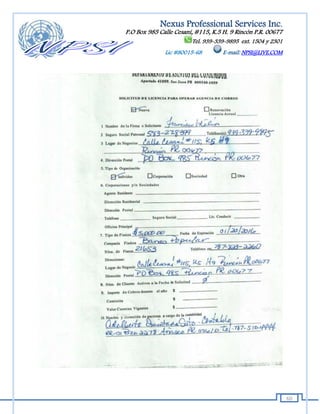 Nexus Professional Services Inc.
P.O Box 985 Calle Cesani, #115, K.5 H. 9 Rincón P.R. 00677
Tel. 939-339-9895 ext. 1504 y 2501
Lic #80015-68 E-mail: NPSI@LIVE.COM
NPSI
DEPARTAMENTO DE ASUNTOS DEL CONSUMIDOR
Apartado 41059, San Juan PR 00940-1059
SOLICITUD DE LICENCIA PARA OPERAR AGENCIA DE COBROS
Nueva Renovación
Licencia Actual
1. Nombre de la Firma o Solicitante
2. Seguro Social Patronal Teléfono(s) 939-339-9895
3. Lugar de Negocios Calle Cesani #115, K5 H9
Rincon PR 00677
4. Dirección Postal PO Box 985 Rincon PR 00677
5. Tipo de Organización
Individuo Corporación Sociedad Otra
6. Corporaciones y/o Sociedades
Agente Residente
Dirección Residencial
Dirección Postal
Teléfono Seguro Social Lic. Conducir
Oficina Principal
7. Tipo de Fianza $5,000.00 Fecha de Expiración 01/20/2016
Compañía Fiadora Banco Popular
Núm. de Fianza 21653 Teléfono 787-823-2260
Direcciones:
Lugar de Negocio Calle Cesani #115, K5 H9 Rincon PR 00677
Dirección Postal PO Box 985 Rincon PR 00677
8. Núm. de Cliente Activos a la Fecha de Solicitud
9. Importe de Cobros durante el año $
Comisión $
Valor Cuentas Vigentes $
10. Nombre y dirección de persona a cargo de la contabilidad
Contable
Añasco PR 00610 Tel-787-510-4444
60